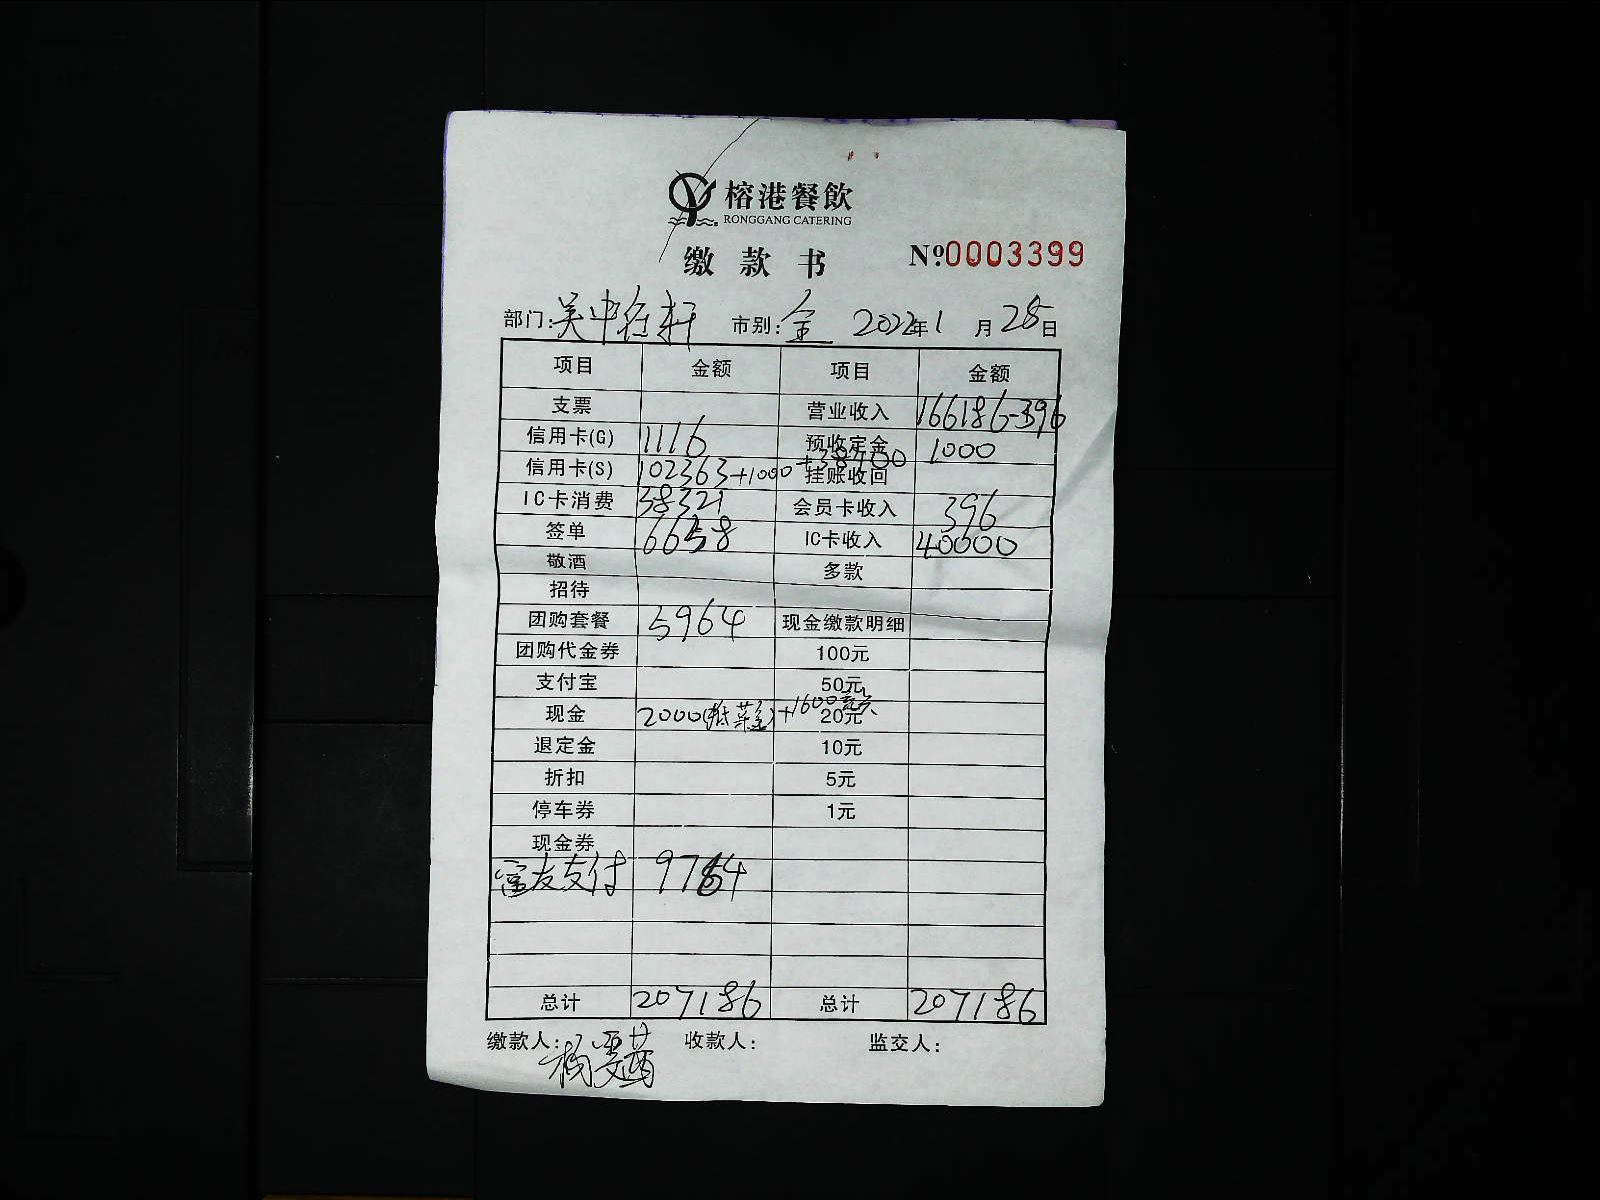 榕港餐飲
RONGGANG CATERING
缴款书 Nº0003399
部门:吴中 轩 市别:全 2022年1月28日
项目 金额 项目 金额
支票 营业收入 166186-396
信用卡(G) 1116 预收定金 1000
信用卡(S) 102363+1000+38400 挂账收回
IC卡消费 38321 会员卡收入 396
签单 6658 IC卡收入 40000
敬酒 多款
招待
团购套餐 5964 现金缴款明细
团购代金券 100元
支付宝 50元
现金 2000(抵菜金)+1600 20元
退定金 10元
折扣 5元
停车券 1元
现金券
富友支付 9764
总计 207186 总计 207186
缴款人: 收款人: 监交人: